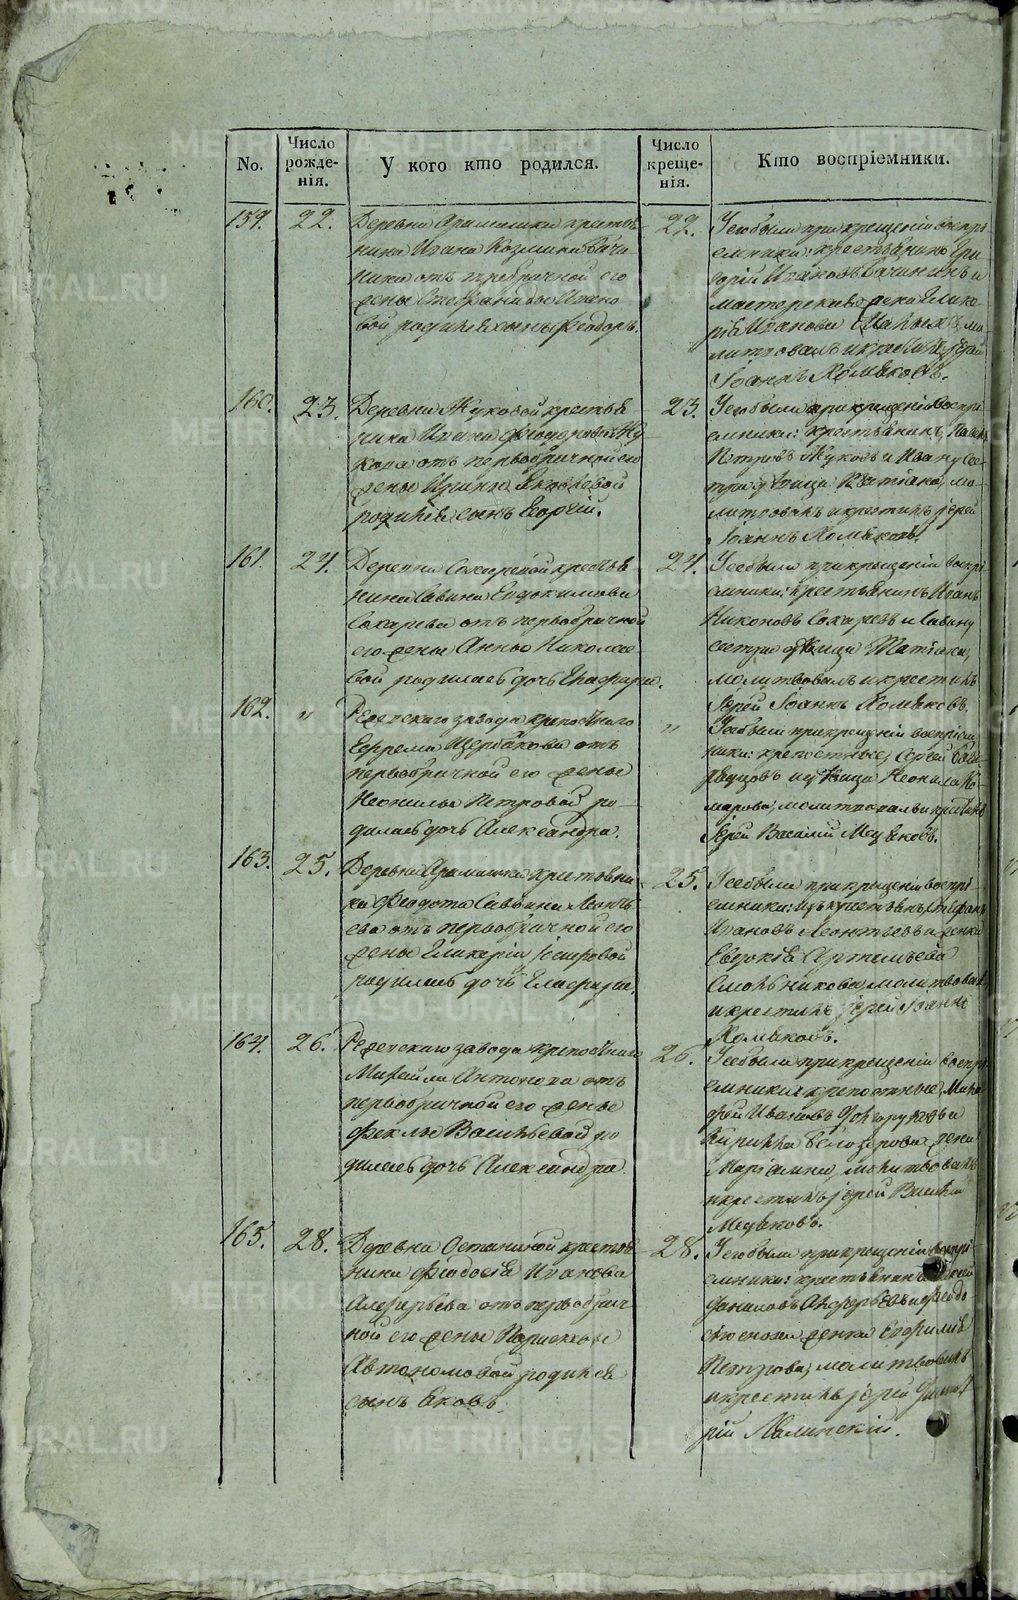 No.
Число рожде-нія.
У кого кто родился.
Число креще-нія.
Кто воспріемники.
159. 22.
Деревни Арамашки крестья
нина Ивана Козмина Бачи
нина отъ третобрачной его
жены Стефаниды Ивано
вой родился сынъ Феодоръ.
22.
У сего были при крещеніи воспрі
емники: крестьянинъ Гри
горій Ивановъ Бачининъ и
мастерскаго жена Глике
рія Иванова мо
литвовалъ и крестилъ іерей
Іоаннъ Хомяковъ.
160. 23.
Деревни Жуковой крестья
нина Ивана Феодорова Жу
кова отъ первобрачной его
жены Ирины Яковлевой
родился сынъ Георгій.
23.
У сего были при крещеніи воспрі
емники: крестьянинъ Павелъ
Петровъ Жуковъ и Ивану се
стра дѣвица Татіана, мо
литвовалъ и крестилъ іерей
Іоаннъ Хомяковъ.
161. 24.
Деревни Сохаревой крестья
нина Савина Евдокимова
Сохарева отъ первобрачной
его жены Анны Николае
вой родилась дочь Глафира.
24.
У сего были при крещеніи воспрі
емники: крестьянинъ Иванъ
Никоновъ Сохаревъ и Савину
сестра дѣвица Татіана,
молитвовалъ и крестилъ
Іерей Іоаннъ Хомяковъ.
162. "
Режевскаго завода крепостнаго
Ефрема Щербакова отъ
первобрачной его жены
Неонилы Петровой ро-
дилась дочь Александра.
"
У сего были при крещеніи воспріем
ники: крепостные, Сергей
и дѣвица Неонила Ко
марова, молитвовалъ и крестилъ
Іерей Василій Мешковъ.
163. 25.
Деревни Арамашки крестьяни
на Феодота Саввина Леонть
ева отъ первобрачной его
жены Гликеріи
родилась дочь Глафира.
25.
У сего были при крещеніи воспрі
емники: изъ крестьянъ, Стефанъ
Ивановъ Леонтьевъ и женка
Евдокія Артемьева
молитвовалъ
и крестилъ іерей Іоаннъ
Хомяковъ.
164. 26.
Режевскаго завода крепостнаго
Михайла Антонова отъ
первобрачной его жены
Феклы Васильевой ро
дилась дочь Александра
26.
У сего были при крещеніи воспрі
емники: крепостные,
Ивановъ и
Кирилла Белоусова жена
Маріамна, молитвовалъ
и крестилъ іерей Василій
Мешковъ.
165. 28.
Деревни Останиной крестья
нина Феодосія Иванова
Алферьева отъ первобрач
ной его жены Парасковьи
Автономовой родился
сынъ Яковъ.
28.
У сего были при крещеніи воспрі
емники: крестьянинъ
Даниловъ Алферьевъ и Феодо
женка Евфимія
Петрова, молитвовалъ
и крестилъ іерей Димит
рій